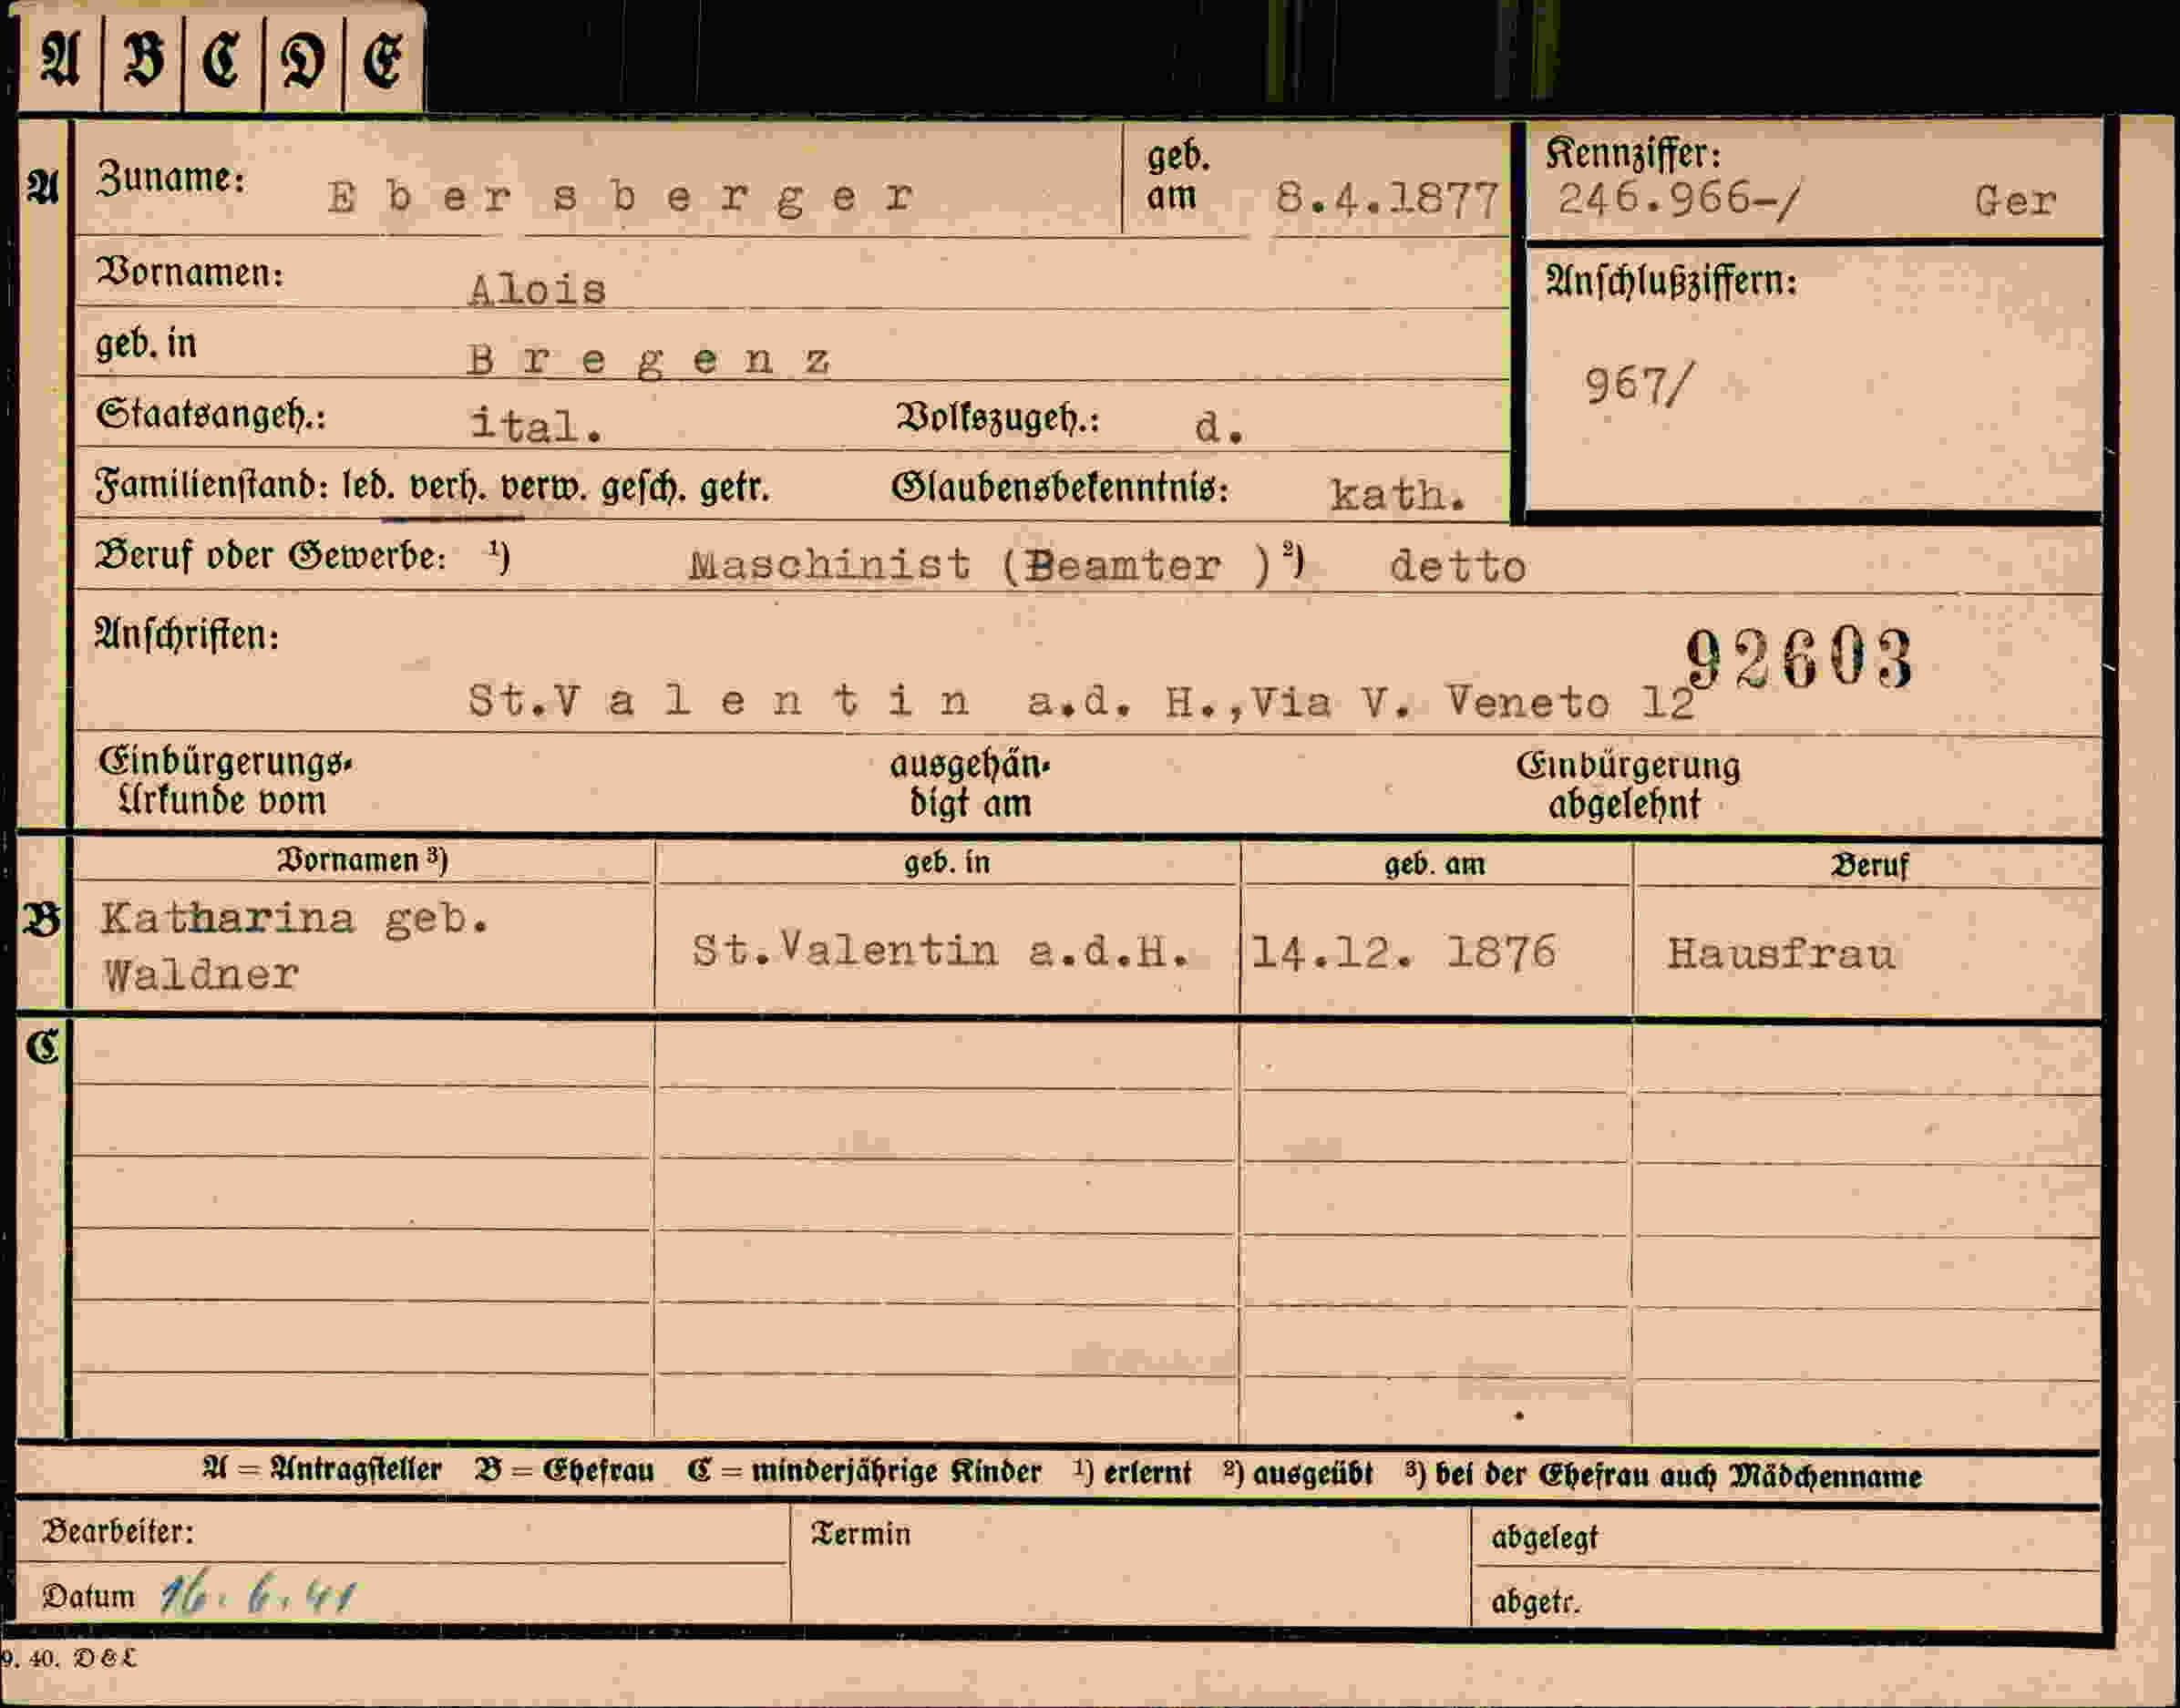 A B C D E
A Zuname: Ebersberger geb. am 8.4.1877 Kennziffer: 246.966-/ Ger
Vornamen: Alois Anschlußziffern:
geb. in Bregenz 967/
Staatsangeh.: ital. Volkszugeh.: d.
Familienstand: led. verh. verw. gesch. getr. Glaubensbekenntnis: kath.
Beruf oder Gewerbe: 1) Maschinist (Beamter ) 2) detto
Anschriften: 92603
St.Valentin a.d. H.,Via V. Veneto 12
Einbürgerungs- ausgehän- Einbürgerung
Urkunde vom digt am abgelehnt
Vornamen 3) geb. in geb. am Beruf
B Katharina geb.
Waldner St.Valentin a.d.H. 14.12. 1876 Hausfrau
C
A = Antragsteller B = Ehefrau C = minderjährige Kinder 1) erlernt 2) ausgeübt 3) bei der Ehefrau auch Mädchenname
Bearbeiter: Termin abgelegt
Datum 16.6.41 abgetr.
9. 40. D & L